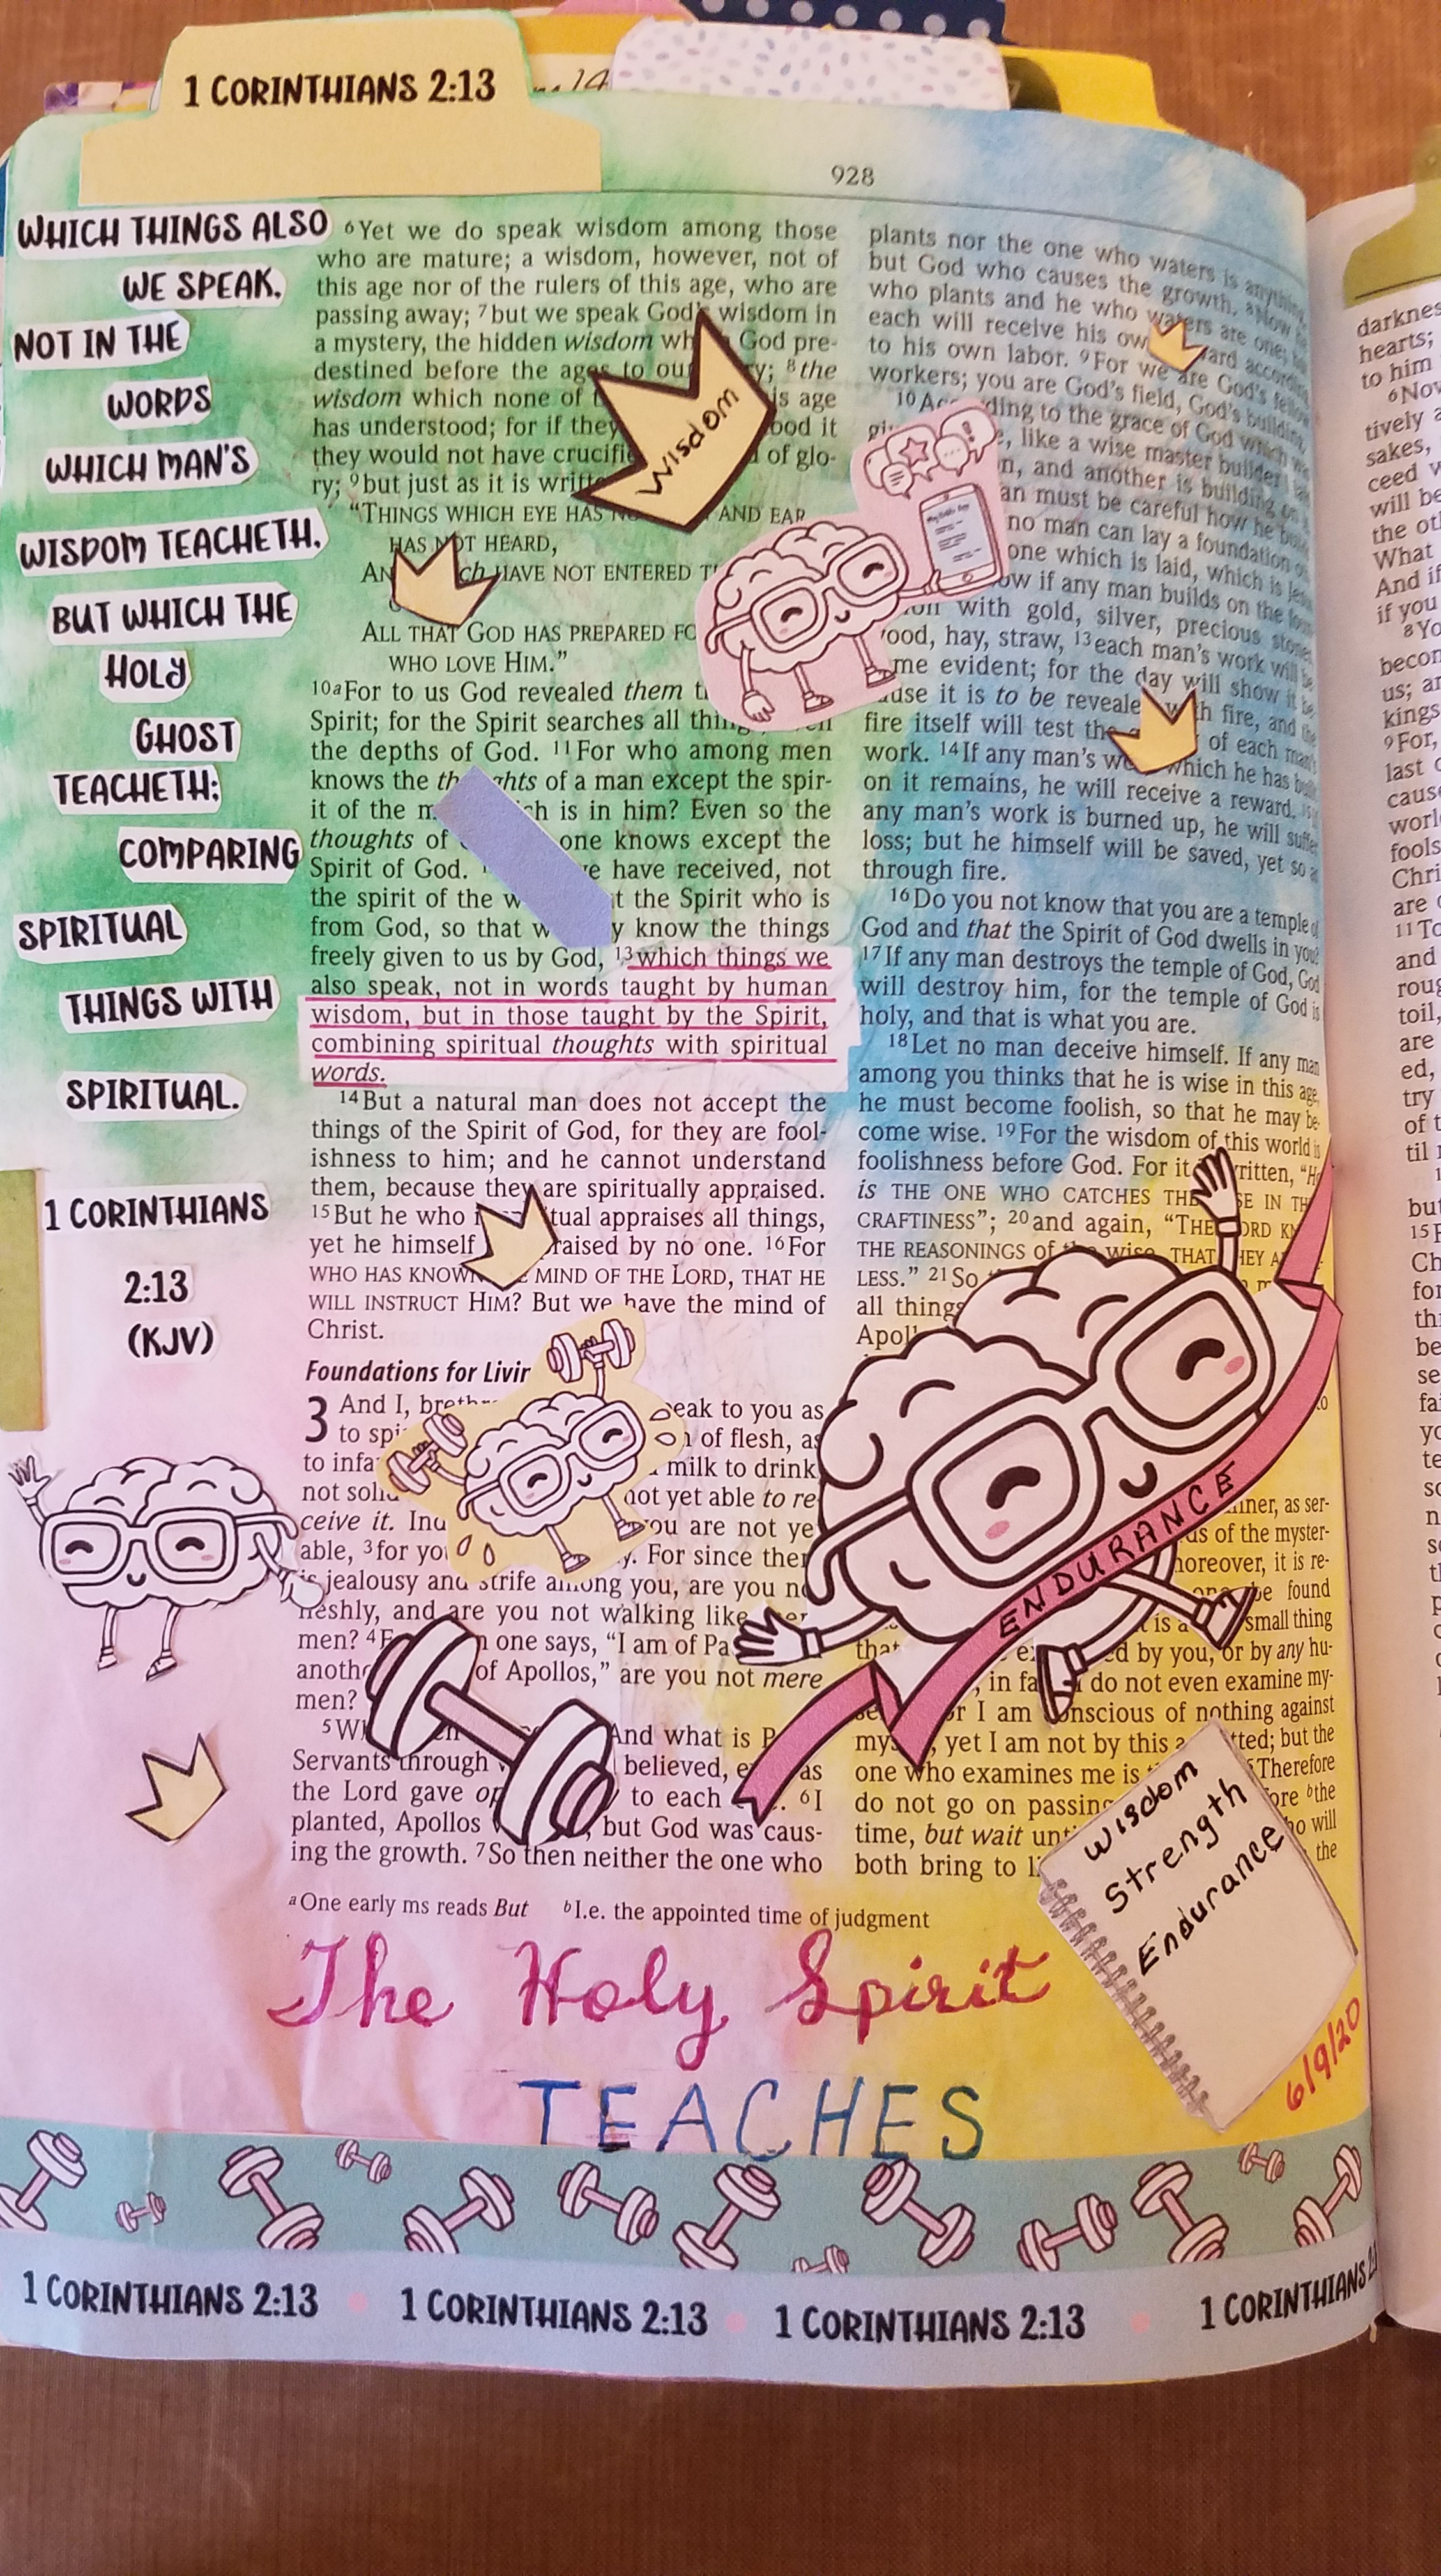 1 CORINTHIANS 2:13
14
928
WHICH THINGS ALSO
WE SPEAK,
NOT IN THE
WORDS
WHICH MAN'S
WISDOM TEACHETH,
BUT WHICH THE
HOLY
GHOST
TEACHETH;
COMPARING
SPIRITUAL
THINGS WITH
SPIRITUAL.
1 CORINTHIANS
2:13
(KJV)
6 Yet we do speak wisdom among those
who are mature; a wisdom, however, not of
this age nor of the rulers of this age, who are
passing away; 7 but we speak God's wisdom in
a mystery, the hidden wisdom wh God pre-
destined before the ages to our y; 8 the
wisdom which none of is age
has understood; for if they ood it
they would not have crucifie of glo-
ry; 9 but just as it is writt
"THINGS WHICH EYE HAS AND EAR
HAS NOT HEARD,
AN ch HAVE NOT ENTERED T
ALL THAT GOD HAS PREPARED FO
WHO LOVE HIM."
10a For to us God revealed them t
Spirit; for the Spirit searches all thin
the depths of God. 11 For who among men
knows the th ghts of a man except the spir-
it of the m ch is in him? Even so the
thoughts of one knows except the
Spirit of God. e have received, not
the spirit of the w t the Spirit who is
from God, so that w y know the things
freely given to us by God, 13 which things we
also speak, not in words taught by human
wisdom, but in those taught by the Spirit,
combining spiritual thoughts with spiritual
words.
14 But a natural man does not accept the
things of the Spirit of God, for they are fool-
ishness to him; and he cannot understand
them, because they are spiritually appraised.
15 But he who i tual appraises all things,
yet he himself raised by no one. 16 For
WHO HAS KNOWN MIND OF THE LORD, THAT HE
WILL INSTRUCT HIM? But we have the mind of
Christ.
Foundations for Livin
3 And I, breth eak to you as
to spi of flesh, as
to infa milk to drink
not solid not yet able to re
ceive it. Ind you are not ye
able, 3 for yo y. For since ther
is jealousy and strife among you, are you no
fleshly, and are you not walking like
men? 4 F one says, "I am of Pa
anoth of Apollos," are you not mere
men?
5 Wh And what is P
Servants through believed, e as
the Lord gave op to each . 6 I
planted, Apollos but God was caus-
ing the growth. 7 So then neither the one who
plants nor the one who waters is anything,
but God who causes the growth. 8 Now he
who plants and he who waters are one;
each will receive his ow ard according
to his own labor. 9 For we are God's fellow
workers; you are God's field, God's building.
10 Ac ding to the grace of God which
gi e, like a wise master builder
n, and another is building on
an must be careful how he
no man can lay a foundation
one which is laid, which is
ow if any man builds on the
with gold, silver, precious stones
ood, hay, straw, 13 each man's work will be
me evident; for the day will show it
ause it is to be reveale h fire, and the
fire itself will test the of each man's
work. 14 If any man's w which he has built
on it remains, he will receive a reward.
any man's work is burned up, he will suffer
loss; but he himself will be saved, yet so
through fire.
16 Do you not know that you are a temple of
God and that the Spirit of God dwells in you?
17 If any man destroys the temple of God, God
will destroy him, for the temple of God is
holy, and that is what you are.
18 Let no man deceive himself. If any man
among you thinks that he is wise in this age,
he must become foolish, so that he may be-
come wise. 19 For the wisdom of this world is
foolishness before God. For it ritten, "He
is THE ONE WHO CATCHES THE SE IN TH
CRAFTINESS"; 20 and again, "THE ORD KN
THE REASONINGS of the wise, THAT HEY A
LESS." 21 So
all things
Apoll
nner, as ser-
ds of the myster-
oreover, it is re-
one be found
is a small thing
that e ed by you, or by any hu-
in fa I do not even examine my-
se r I am conscious of nothing against
mys , yet I am not by this a tted; but the
one who examines me is Therefore
do not go on passing ore b the
time, but wait unt ho will
both bring to l the
Wisdom
ENDURANCE
Wisdom
Strength
Endurance
6/9/20
a One early ms reads But b I.e. the appointed time of judgment
The Holy Spirit
TEACHES
1 CORINTHIANS 2:13 1 CORINTHIANS 2:13 1 CORINTHIANS 2:13 1 CORINTHIANS 2: